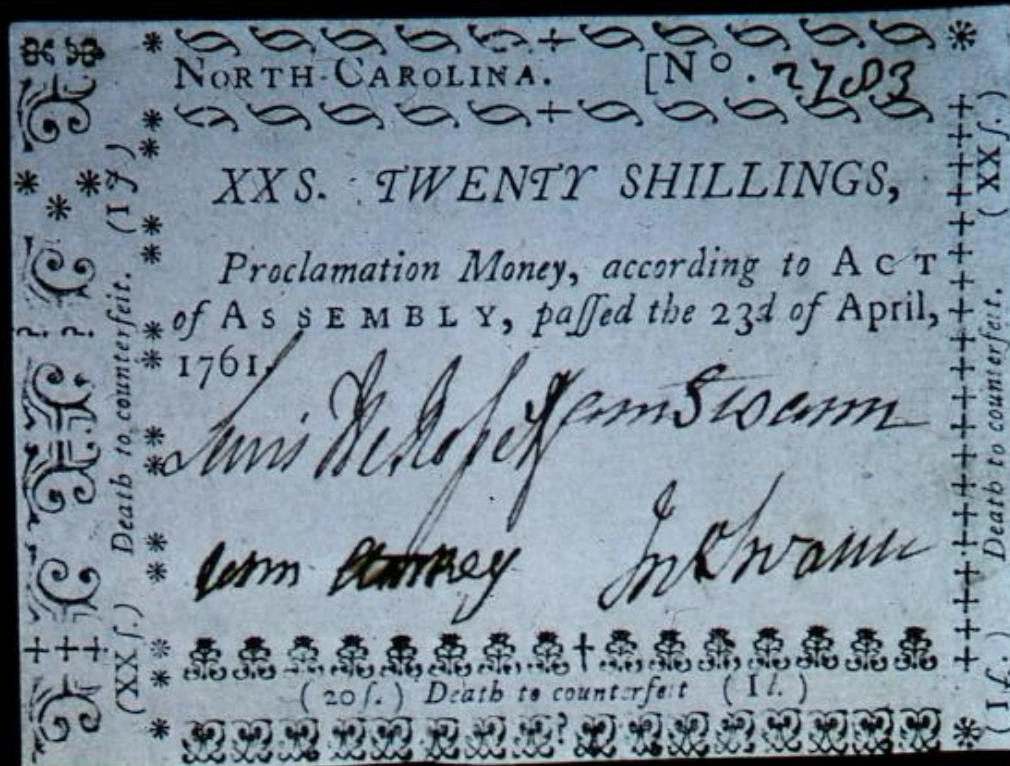 NORTH-CAROLINA. [No. 2783
XXS. TWENTY SHILLINGS,
Proclamation Money, according to ACT
of ASSEMBLY, paſſed the 23d of April,
1761.
Lewis DeRoſset Sam Swann
John Starkey Jno Swann
(20ſ.) Death to counterfeit (1l.)
(XXſ.) Death to counterfeit.
(1ſ.) Death to counterfeit. (XXſ.)